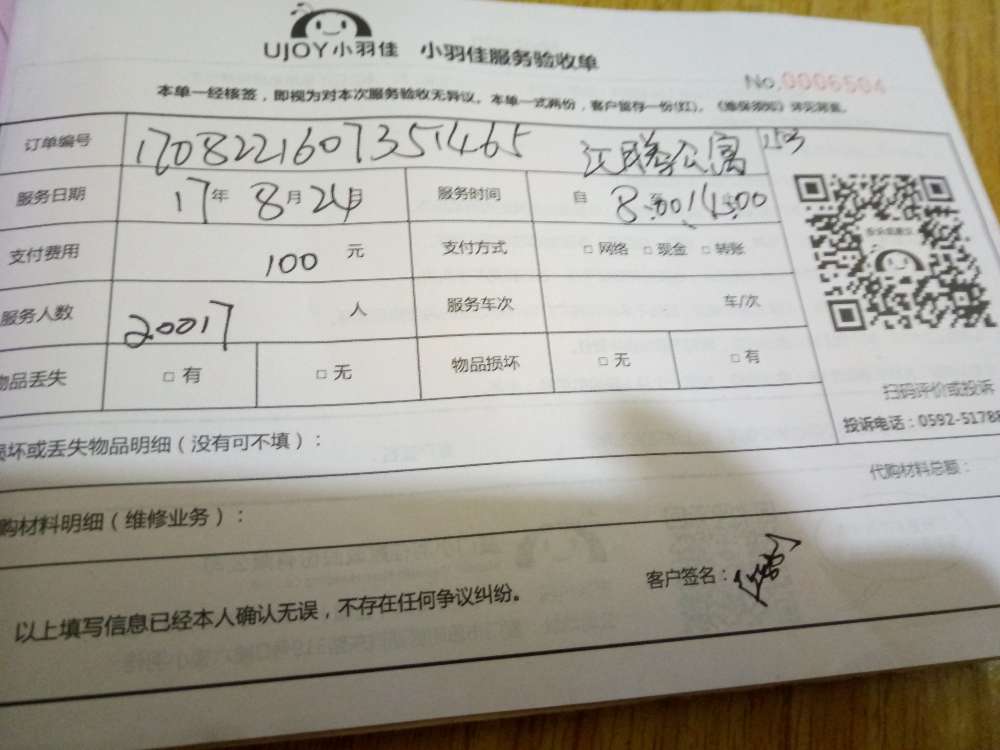 UJOY小羽佳 小羽佳服务验收单
No.0006504
本单一经核签，即视为对本次服务验收无异议。本单一式两份，客户留存一份(红)。《维保须知》详见背面。
订单编号 1708221607351465 公寓 1503
服务日期 17年 8月24日 服务时间 自 8:00 14:00
支付费用 100 元 支付方式 □ 网络 □ 现金 □ 转账
服务人数 20017 人 服务车次 车/次
物品丢失 □ 有 □ 无 物品损坏 □ 无 □ 有
扫码评价或投诉
投诉电话：0592-5178
损坏或丢失物品明细（没有可不填）：
代购材料总额：
购材料明细（维修业务）：
客户签名：
以上填写信息已经本人确认无误，不存在任何争议纠纷。